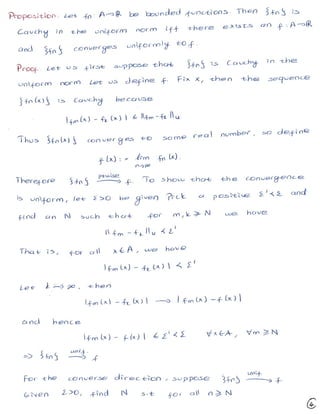 Proposition. Let fn A→R be bounded functions. Then {fn} is
Cauchy in the uniform norm iff there exists an f. A→R
and {fn} converges uniformly to f.
Proof Let us first suppose that {fn} is Cauchy in the
uniform norm Let us define f. Fix x, then the sequence
{fn(x)} is Cauchy because
|fm(x) - fk(x)| ≤ ||fm-fk||u
Thus {fn(x)} converges to some real number, so define
f(x) := lim fn(x).
n→∞
Therefore {fn} pwise→ f. To show that the convergence
is uniform, let ε>0 be given Pick a positive ε'<ε and
find an N such that for m,k ≥ N we have
||fm - fk||u < ε'
That is, for all x∈A, we have
|fm(x) - fk(x)| < ε'
Let k→∞, then
|fm(x) - fk(x)| → |fm(x) - f(x)|
and hence
|fm(x) - f(x)| ≤ ε' < ε ∀x∈A, ∀m≥N
=> {fn} unif→ f
For the converse direction, suppose {fn} unif→ f
Given ε>0, find N s.t for all n≥N
4